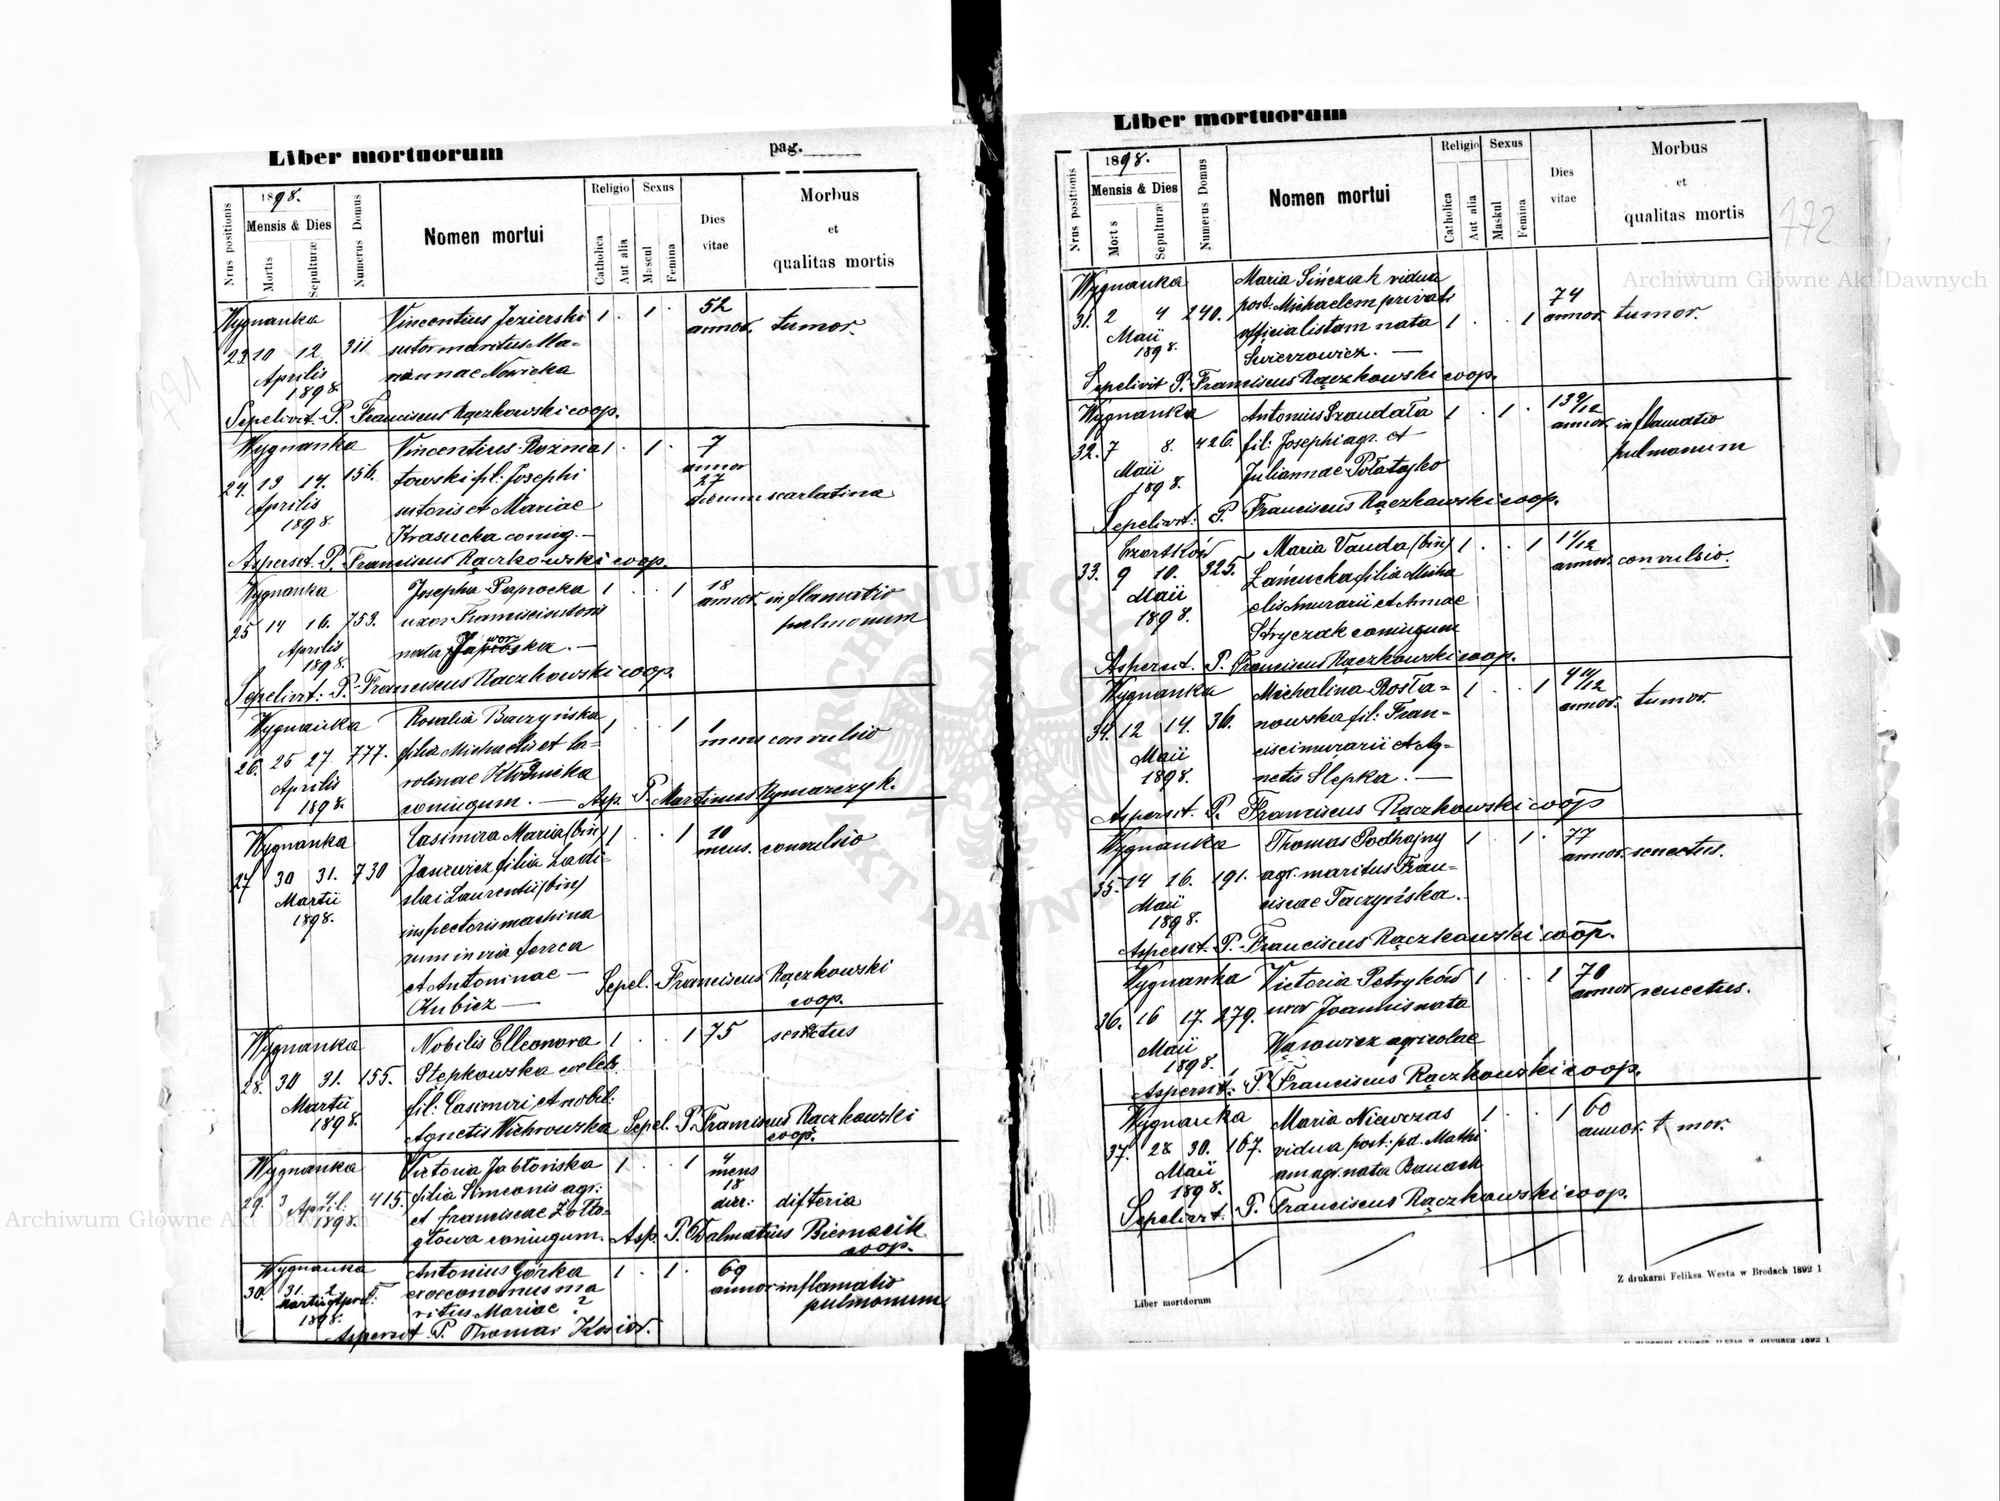 Liber mortuorum pag.
Nrus positionis
1898.
Mensis & Dies
Mortis
Sepulturæ
Numerus Domus
Nomen mortui
Religio
Catholica
Aut alia
Sexus
Mascul
Femina
Dies
vitae
Morbus
et
qualitas mortis
Wygnanka Vincentius Jezierski 1 . 1 . 52
23 10 12 311 sutor maritus Ma- annor. tumor.
Aprilis riannae Nowicka
1898
Sepelivit P. Franciscus Rączkowski coop.
Wygnanka Vincentius Rozma 1 . 1 . 7
24. 13 14. 156. towski fil: Josephi annor
Aprilis sutoris et Mariae 27 dierum scarlatina
1898. Krasucka coniug. —
Asperset. P. Franciscus Rączkowski coop.
Wygnanka Josepha Paprocka 1 . . 1 18
25 14 16. 753. uxor Francisci sutoris annor. inflamatio
Aprilis nata pulmonum
1898.
Sepelivit: P. Franciscus Rączkowski coop.
Wygnanka Rosalia Baczyńska 1 . . 1 1
26. 25 27. 777. filia Michaelis et Ca- mens convulsio
Aprilis rolinae
1898. coniugum. — Asp. P. Martinus Rymarczyk.
Wygnanka Casimira Maria (bin) 1 . . 1 10
27 30 31. 730 filia Ladi- mens. convulsio
Martii slai Laurentii (bin)
1898. inspectoris machina
rum in via ferrea
et Antoninae —
Kubicz — Sepel. Franciscus Rączkowski
coop.
Wygnanka Nobilis Elleonora 1 . . 1 75 senectus
28. 30 31. 155. Stępkowska celebs.
Martii fil: Casimiri et nobil:
1898. Agnetis Wichrowska Sepel. P. Franciscus Rączkowski
coop.
Wygnanka Victoria Jabłońska 1 . . 1 4
29. 3 4. 415. filia Simeonis agr: mens 18
April: et Franciscae Żółto- dier: difteria
1898. głowa coniugum. Asp. P. Dalmatius Biernacik
coop.
Wygnanka Antonius Górka 1 . 1 . 69
30. 31. 2 ex oeconomus ma annor inflamatio
Martii April: ritus Mariae ? pulmonum
1898.
Asperset P. Thomas Kosior.
Liber mortuorum
Nrus positionis
1898.
Mensis & Dies
Mortis
Sepulturæ
Numerus Domus
Nomen mortui
Religio
Catholica
Aut alia
Sexus
Maskul
Femina
Dies
vitae
Morbus
et
qualitas mortis
772
Wygnanka Maria Sińczak vidua
31. 2 4 240. post. Michaelem privati 74
Maii officialistam nata 1 . . 1 annor. tumor.
1898. Swierzowicz. —
Sepelivit P. Franciscus Rączkowski coop.
Wygnanka Antonius Szaudała 1 . 1 . 13 9/12
32. 7 8. 426. fil: Josephi agr. et annor. inflamatio
Maii Juliannae pulmonum
1898.
Sepelivit: P. Franciscus Rączkowski coop.
Czortków Maria Vanda (bin) 1 . . 1 1 1/12
33. 9 10. 325. Łańcucka filia Micha annor. convulsio.
Maii elis murarii et Annae
1898. Stryczak coniugum
Asperset. P. Franciscus Rączkowski coop.
Wygnanka Michalina Rosła- 1 . . 1 4 11/12
34. 12 14. 36. nowska fil: Fran- annor. tumor.
Maii cisci murarii et Ag-
1898. netis Slepka. —
Asperset. P. Franciscus Rączkowski coop
Wygnanka Thomas Podhajny 1 . 1 . 77
35. 14 16. 191. agr. maritus Fran- annor. senectus.
Maii ciscae Taczyńska.
1898.
Asperset. P. Franciscus Rączkowski coop.
Wygnanka Victoria Petryków 1 . . 1 70
36. 16 17. 279. uxor Joannis nata annor senectus.
Maii Wąsowicz agricolae
1898.
Asperset. P. Franciscus Rączkowski coop.
Wygnanka Maria Niewczas 1 . . 1 60
37. 28 30. 167. vidua post: pd. Mathi annor. t mor.
Maii am agr. nata Banach
1898.
Sepelivit. P. Franciscus Rączkowski coop.
Liber mortdorum
Z drukarni Feliksa Westa w Brodach 1892 1
Archiwum Główne Akt Dawnych
Archiwum Główne Akt Dawnych
ARCHIWUM GŁÓWNE AKT DAWNYCH